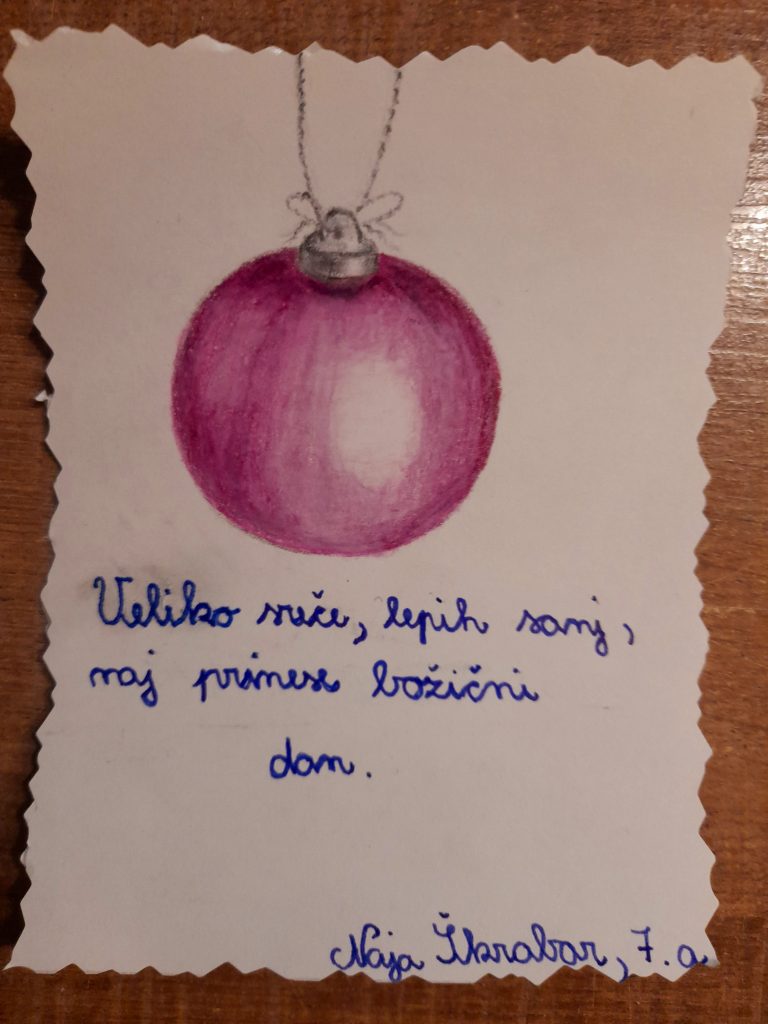 Veliko sreče, lepih sanj,
naj prinese božični
dan.
Naja Škrabar, 7. a